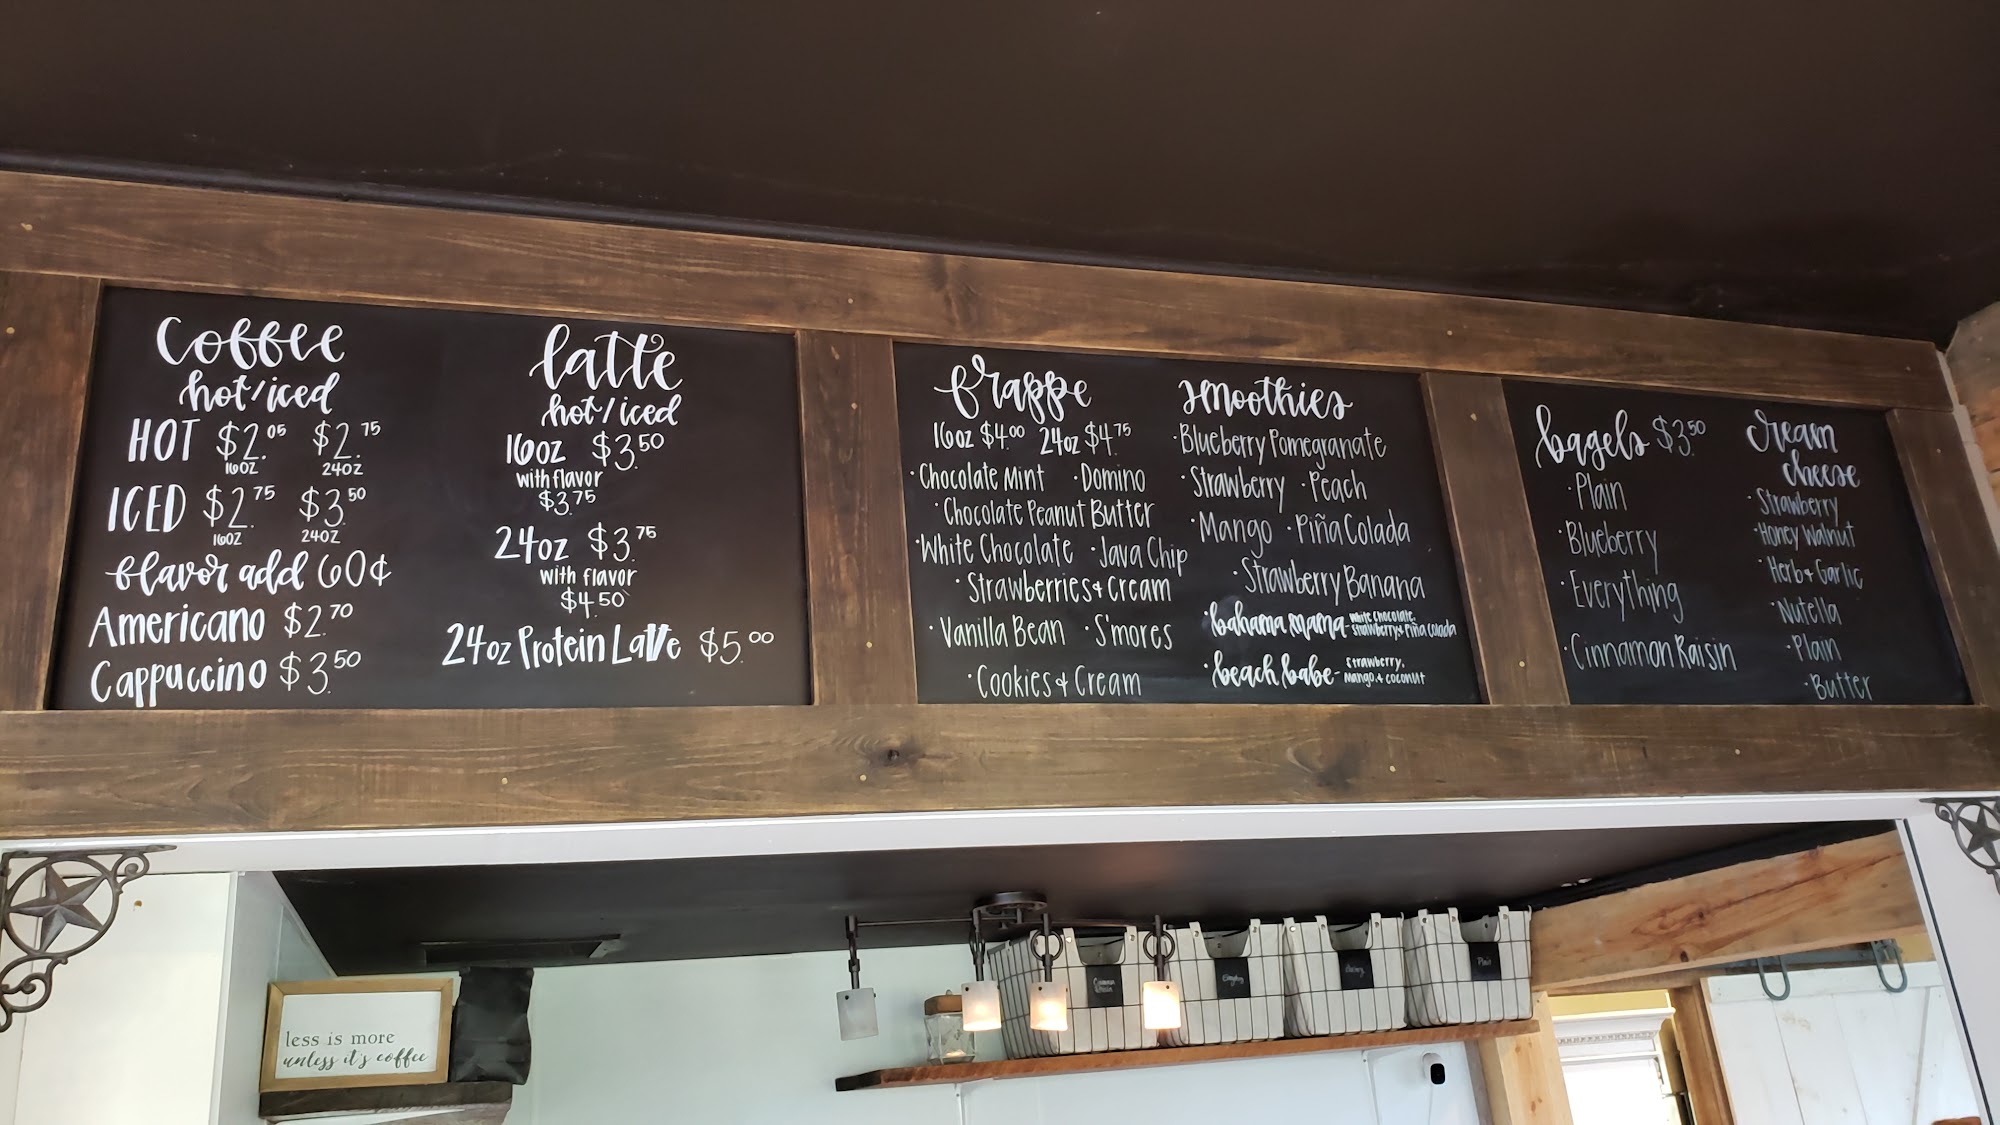 Coffee
hot/iced
HOT $2.05 $2.75
16oz 24oz
ICED $2.75 $3.50
16oz 24oz
flavor add 60¢
Americano $2.70
Cappuccino $3.50
latte
hot/iced
16oz $3.50
with flavor
$3.75
24oz $3.75
with flavor
$4.50
24oz Protein Latte $5.00
frappe
16oz $4.00 24oz $4.75
·Chocolate Mint ·Domino
·Chocolate Peanut Butter
·White Chocolate ·Java Chip
·Strawberries & Cream
·Vanilla Bean ·S'mores
·Cookies & Cream
smoothies
·Blueberry Pomegranate
·Strawberry ·Peach
·Mango ·Piña Colada
·Strawberry Banana
·bahama mama- white chocolate,
strawberry & Piña Colada
·beach babe- strawberry,
mango, & coconut
bagels $3.50
·Plain
·Blueberry
·Everything
·Cinnamon Raisin
cream
cheese
·Strawberry
·Honey Walnut
·Herb & Garlic
·Nutella
·Plain
·Butter
less is more
unless it's coffee
Cinnamon
Raisin
Everything
Plain